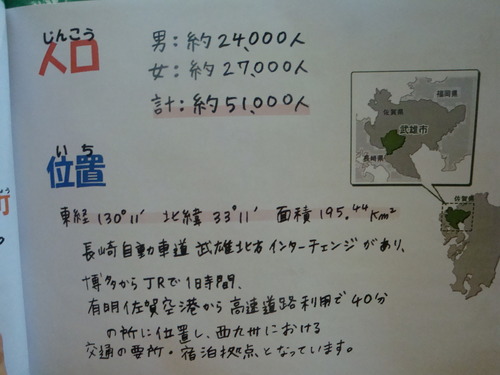 じんこう
人口
男:約24,000人
女:約27,000人
計:約51,000人
いち
位置
東経130°11′ 北緯33°11′ 面積195.44Km²
長崎自動車道 武雄北方インターチェンジがあり、
博多からJRで1時間、
有明佐賀空港から高速道路利用で40分
の所に位置し、西九州における
交通の要所・宿泊拠点となっています。
福岡県
佐賀県
武雄市
長崎県
佐賀県